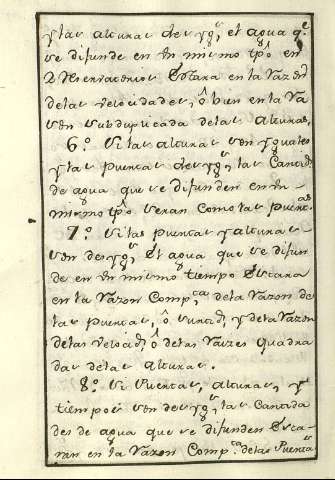 y las alturas des yg.s, el agua q.e
se difunde en vn mismo tpō en
2 Desentaderos Estara en la Razon
de las velocidades, ô bien en la Ra
son subduplicada de las alturas.
6.º Si las alturas son yguales
y las puertas des yg.s, las Cantid.s
de agua que se difunden en vn
mismo tpō seran como las puertas
7.º Si las puertas y alturas
son des yg.s, El agua que se difun
de en vn mismo tiempo Estara
en la Razon Comp.ta de la Razon de
las puertas, ô y de la Razon
de las velocid.s, ô de las Raizes quadra
das de las alturas.
8.º Si Puertas, alturas, y
tiempos son des yg.s, las Cantida
des de agua que se difunden Esta
ran en la Razon Comp.ta de las Puertas